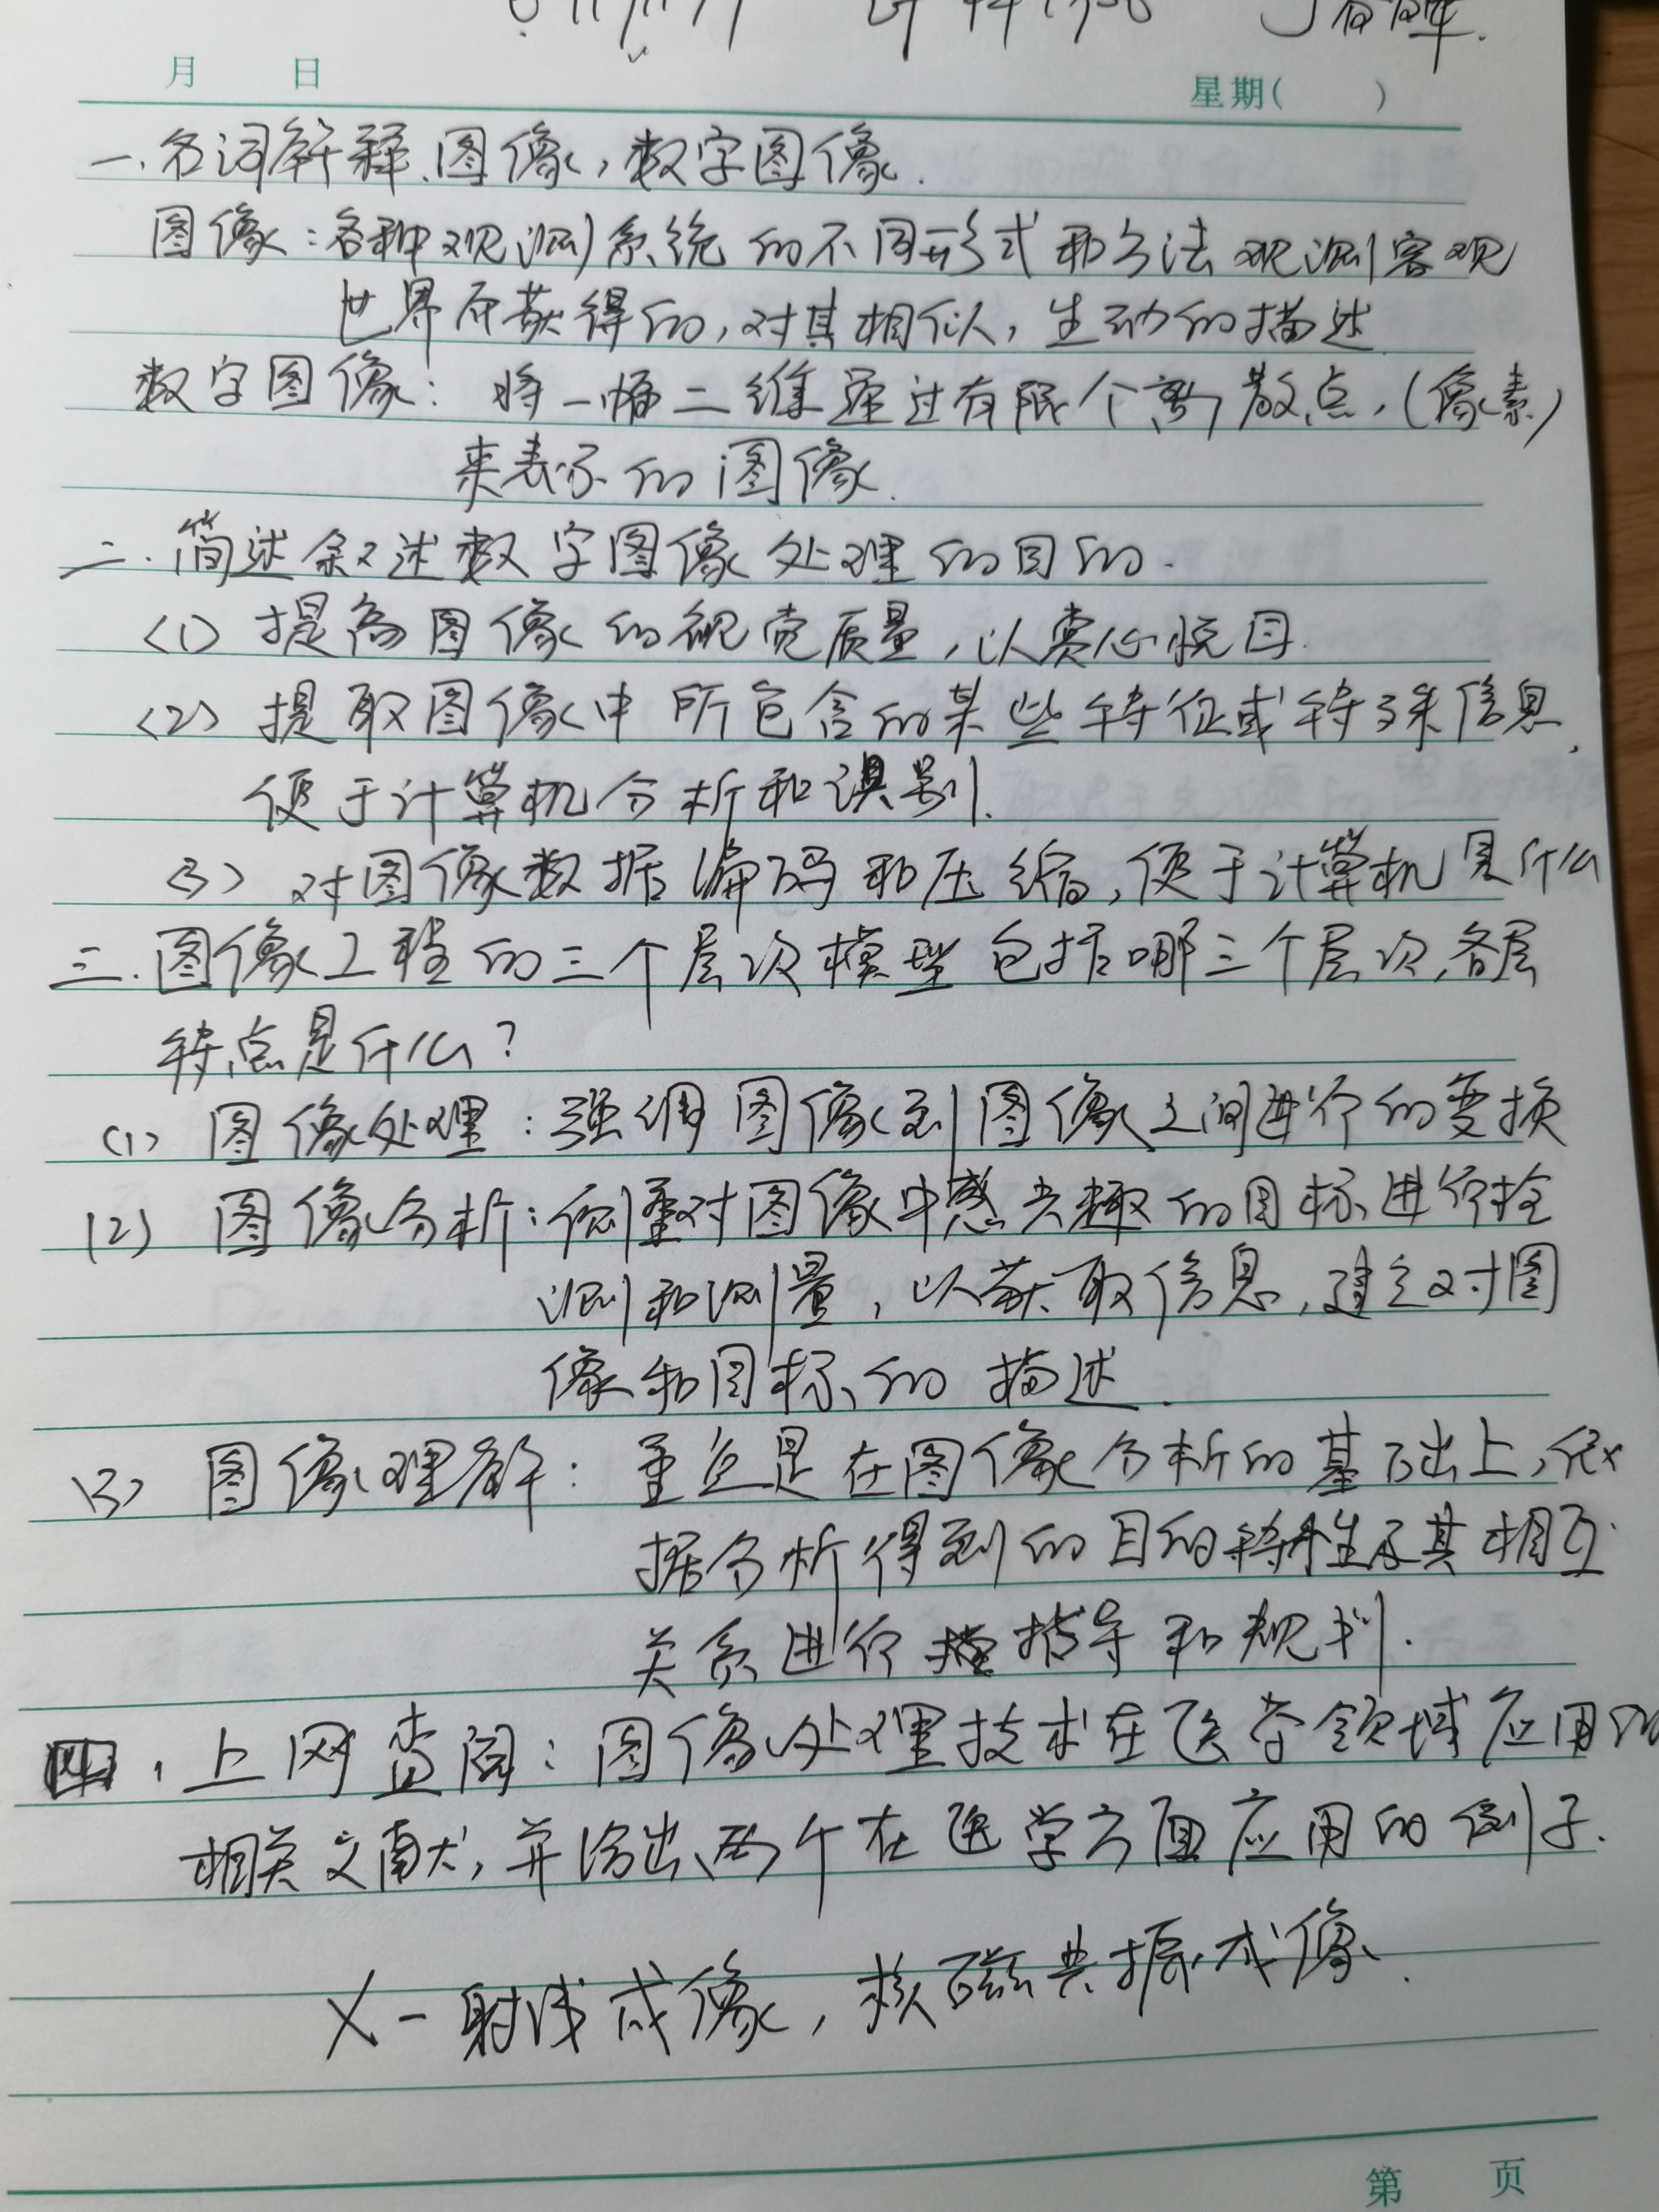 月 日 星期( )
一.名词解释.图像,数字图像.
图像:各种观测系统的不同形式和方法观测客观
世界所获得的,对其相似,生动的描述
数字图像: 将一幅二维通过有限个离散点,(像素)
来表示的图像.
二.简述叙述数字图像处理的目的.
(1) 提高图像的视觉质量,以赏心悦目.
(2) 提取图像中所包含的某些特征或特殊信息,
便于计算机分析和识别.
(3) 对图像数据编码和压缩,便于计算机是什么
三.图像工程的三个层次模型包括哪三个层次,各层
特点是什么?
(1) 图像处理:强调图像到图像之间进行的变换
(2) 图像分析:侧重对图像中感兴趣的目标进行检
测和测量,以获取信息,建立对图
像和目标的描述.
(3) 图像理解: 重点是在图像分析的基础上,依
据分析得到的目的特性及其相互
关系进行 指导和规划.
四,上网查阅:图像处理技术在医学领域应用的
相关文献,并给出两个在医学方面应用的例子.
X-射线成像,核磁共振成像.
第 页